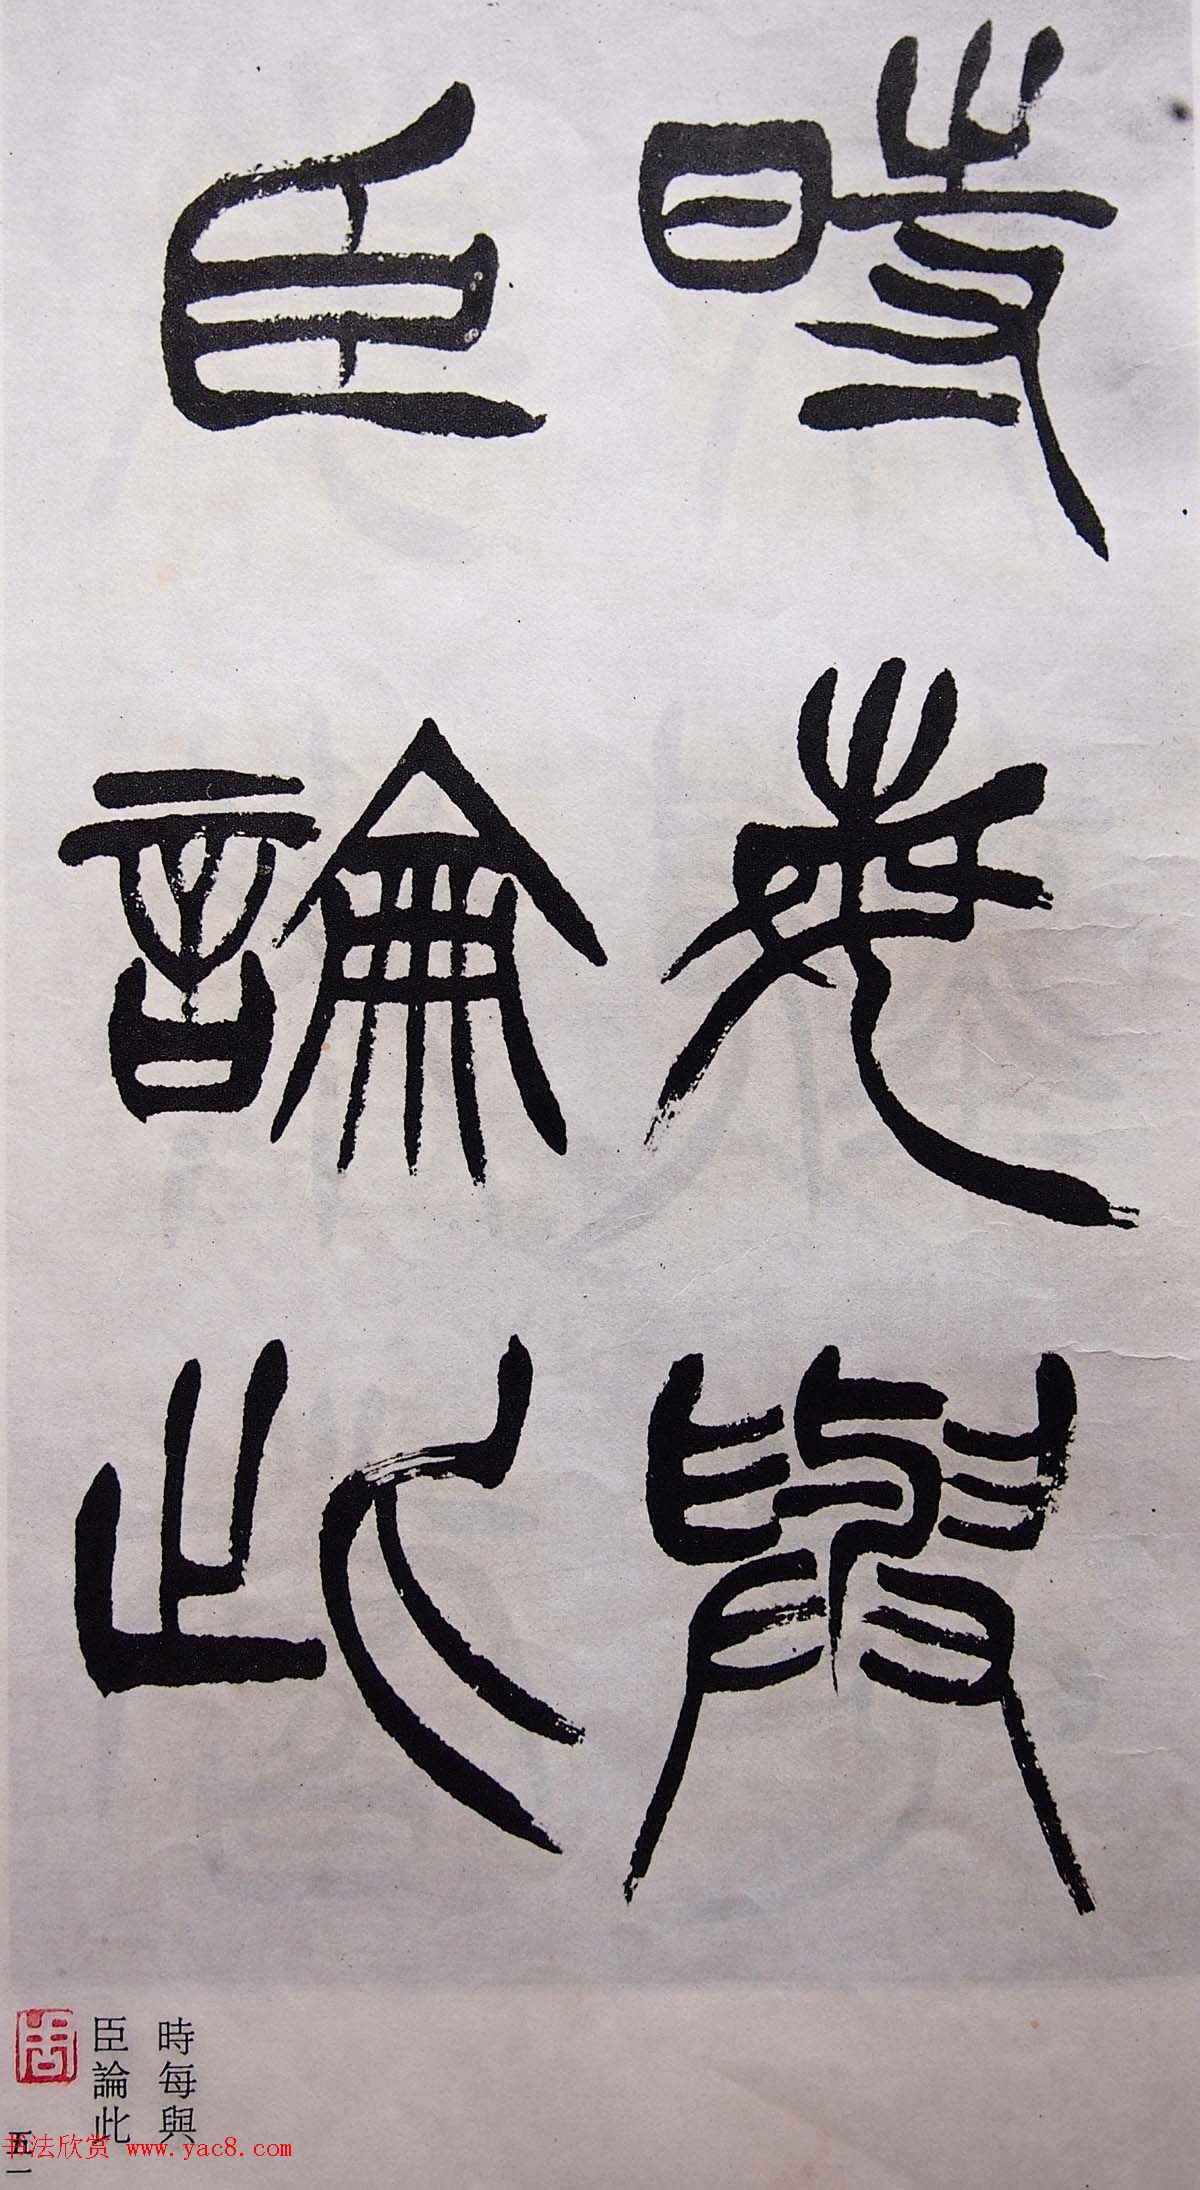 時每與
臣論此
時每與
臣論此
五一
书法欣赏 www.yac8.com